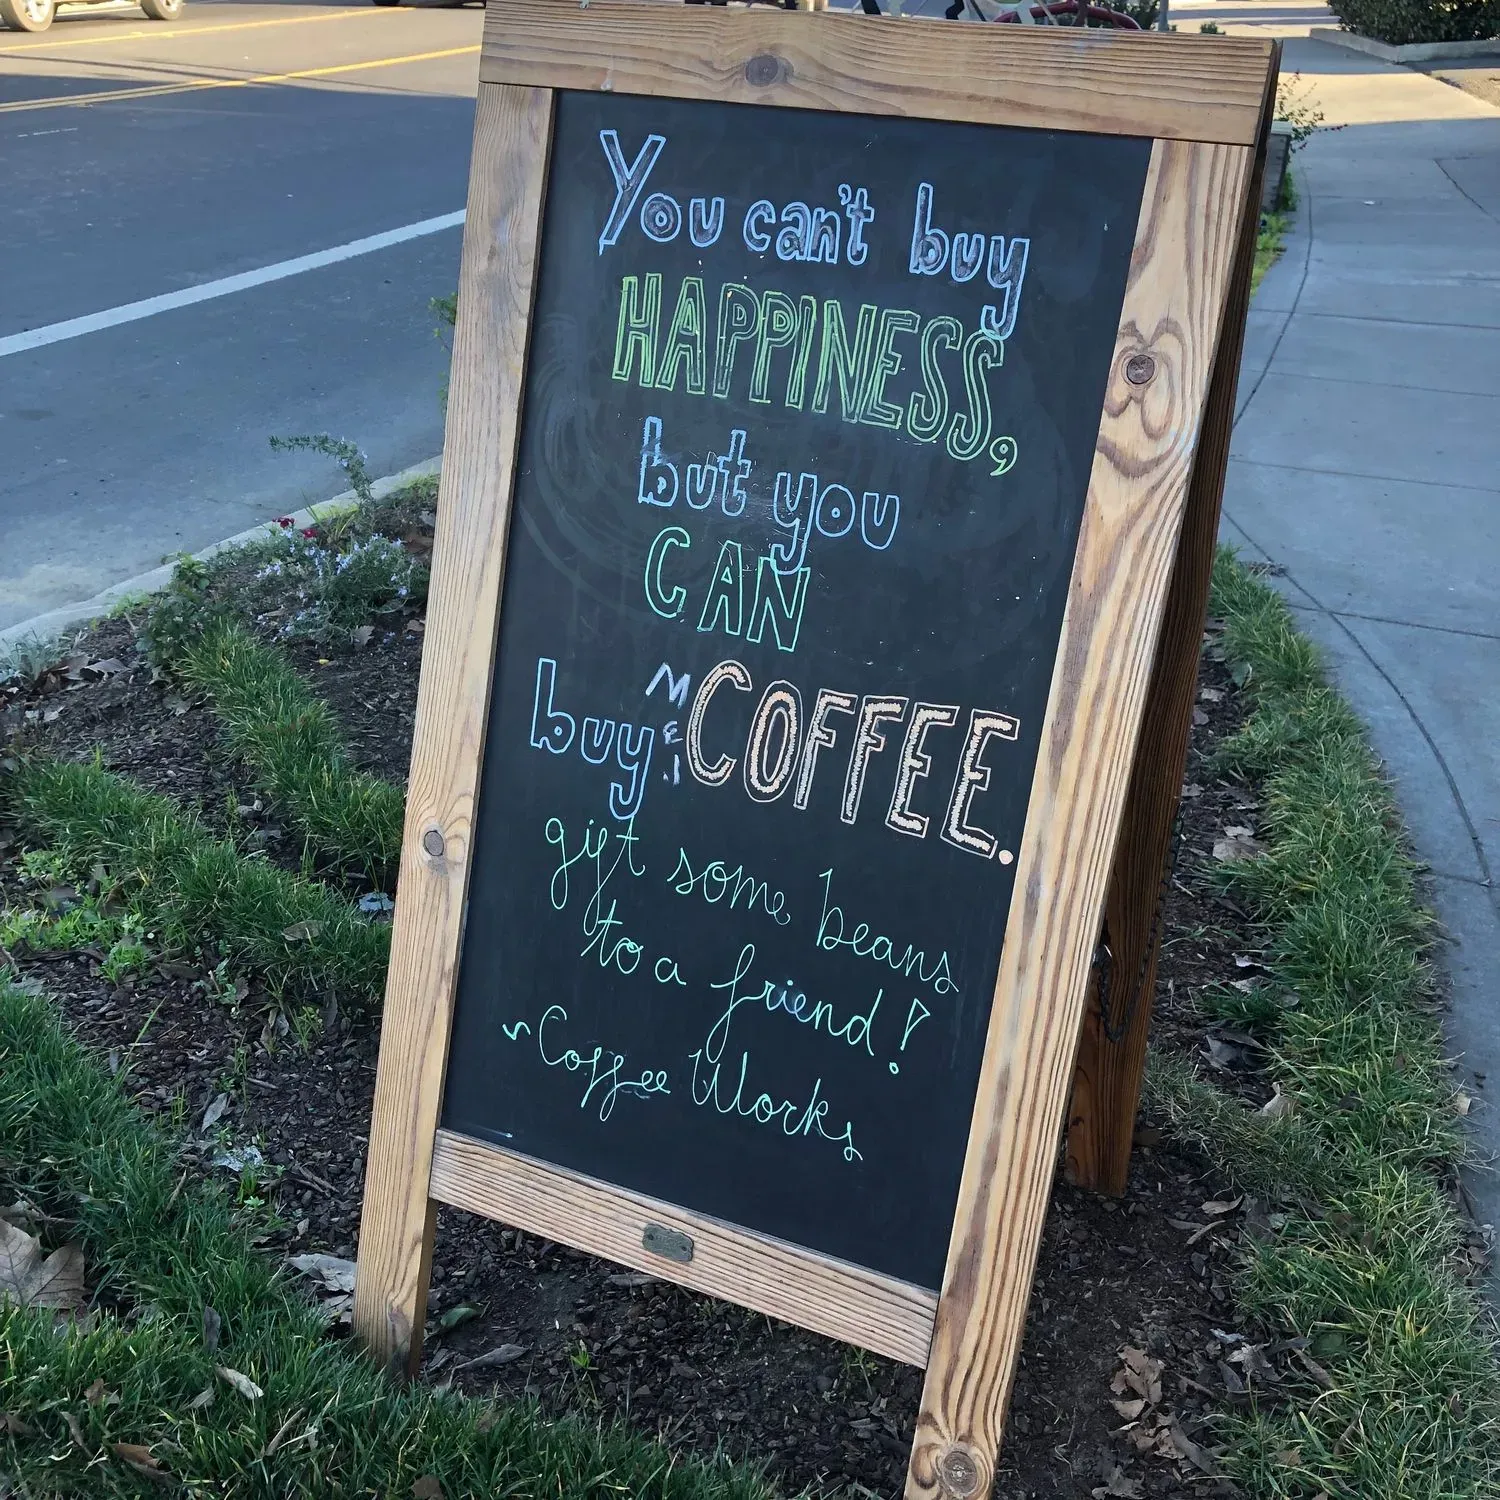 You can't buy
HAPPINESS,
but you
CAN
buy ME COFFEE.
gift some beans
to a friend!
~Coffee Works